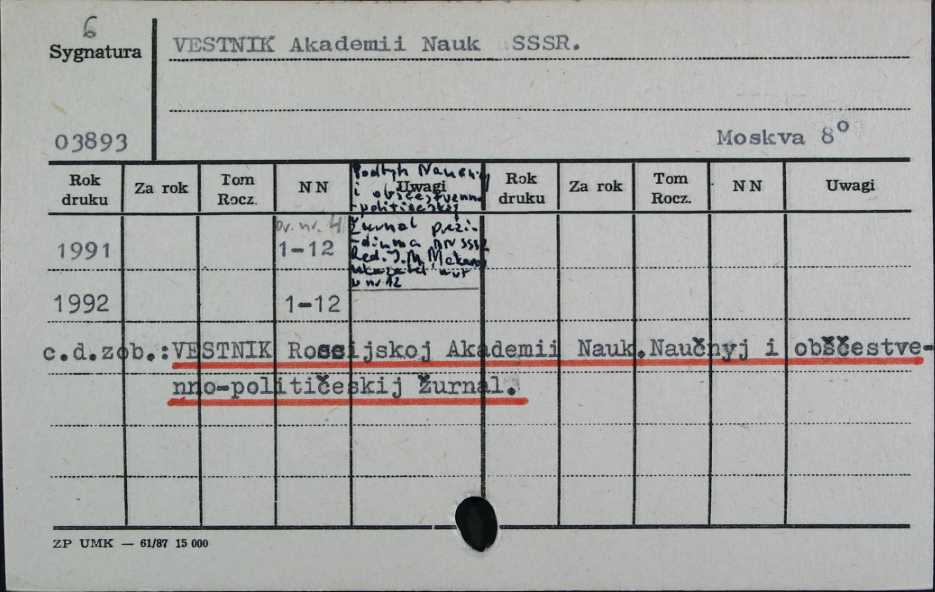 6
Sygnatura
VESTNIK Akademii Nauk SSSR.
03893
Moskva 8°
Rok druku Za rok Tom Rocz. NN Uwagi Rok druku Za rok Tom Rocz. NN Uwagi
Podtyt Naučnyj
i obščestvenno
-političeskij
Žurnal prezi-
-diuma AN SSSR
Red. I. M. Makarov
w nr 12
br. nr. 4
1991 1-12
1992 1-12
c.d.zob.:VESTNIK Rossijskoj Akademii Nauk.Naučnyj i obščestve-
nno-političeskij žurnal.
ZP UMK — 61/87 15 000